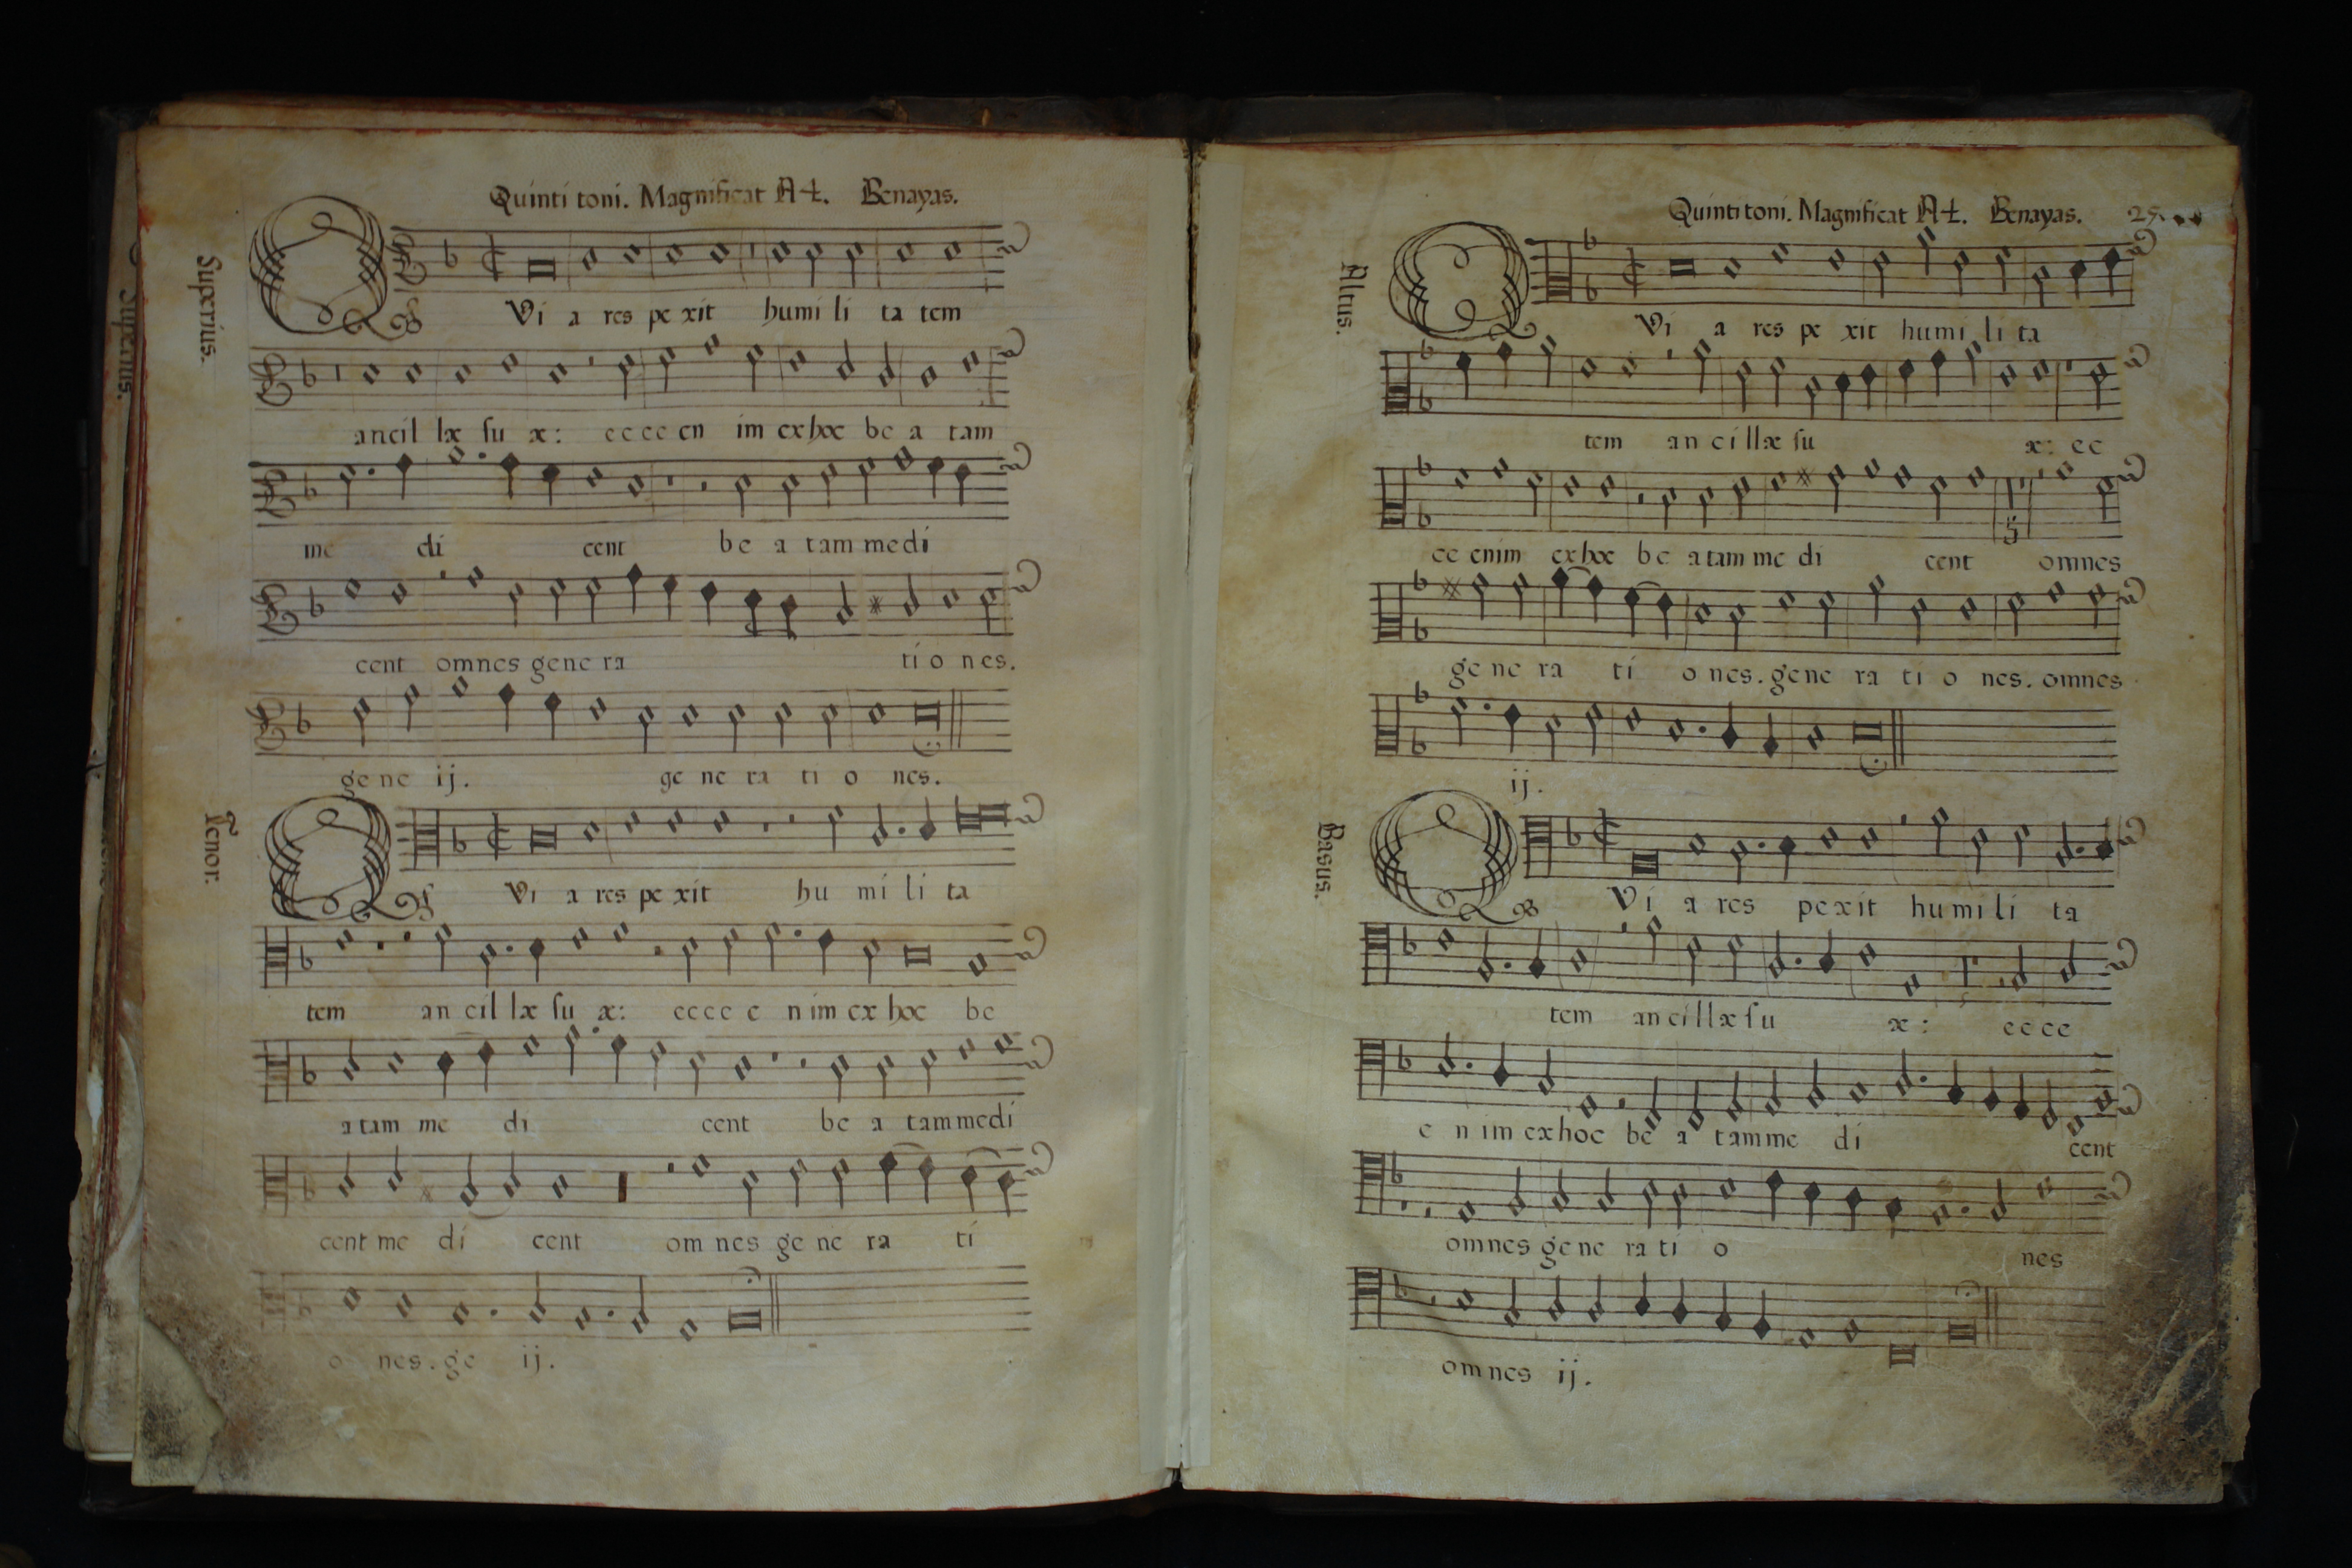 Quinti toni. Magnificat A4. Benayas.
Superius.
QVi a res pe xit humi li ta tem
ancil læ ſu æ: ecce en im exhoc be a tam
me di cent be a tam medi
cent omnes gene ra ti o nes.
ge ne ij. ge ne ra ti o nes.
Tenor.
QVi a res pe xit hu mi li ta
tem an cil læ ſu æ: ecce e nim ex hoc be
a tam me di cent be a tam medi
cent me di cent om nes ge ne ra ti
o nes. ge ij.
Superius.
Quinti toni. Magnificat A4. Benayas. 25.
Altus.
QVi a res pe xit humi li ta
tem an ci llæ ſu æ: ec
ce enim exhoc be a tam me di cent omnes
ge ne ra ti o nes. gene ra ti o nes. omnes
ij.
Basus.
QVi a res pexit humi li ta
tem an ci llæ ſu æ: ecce
e n im exhoc be a tamme di cent
omnes ge ne ra ti o nes
om nes ij.